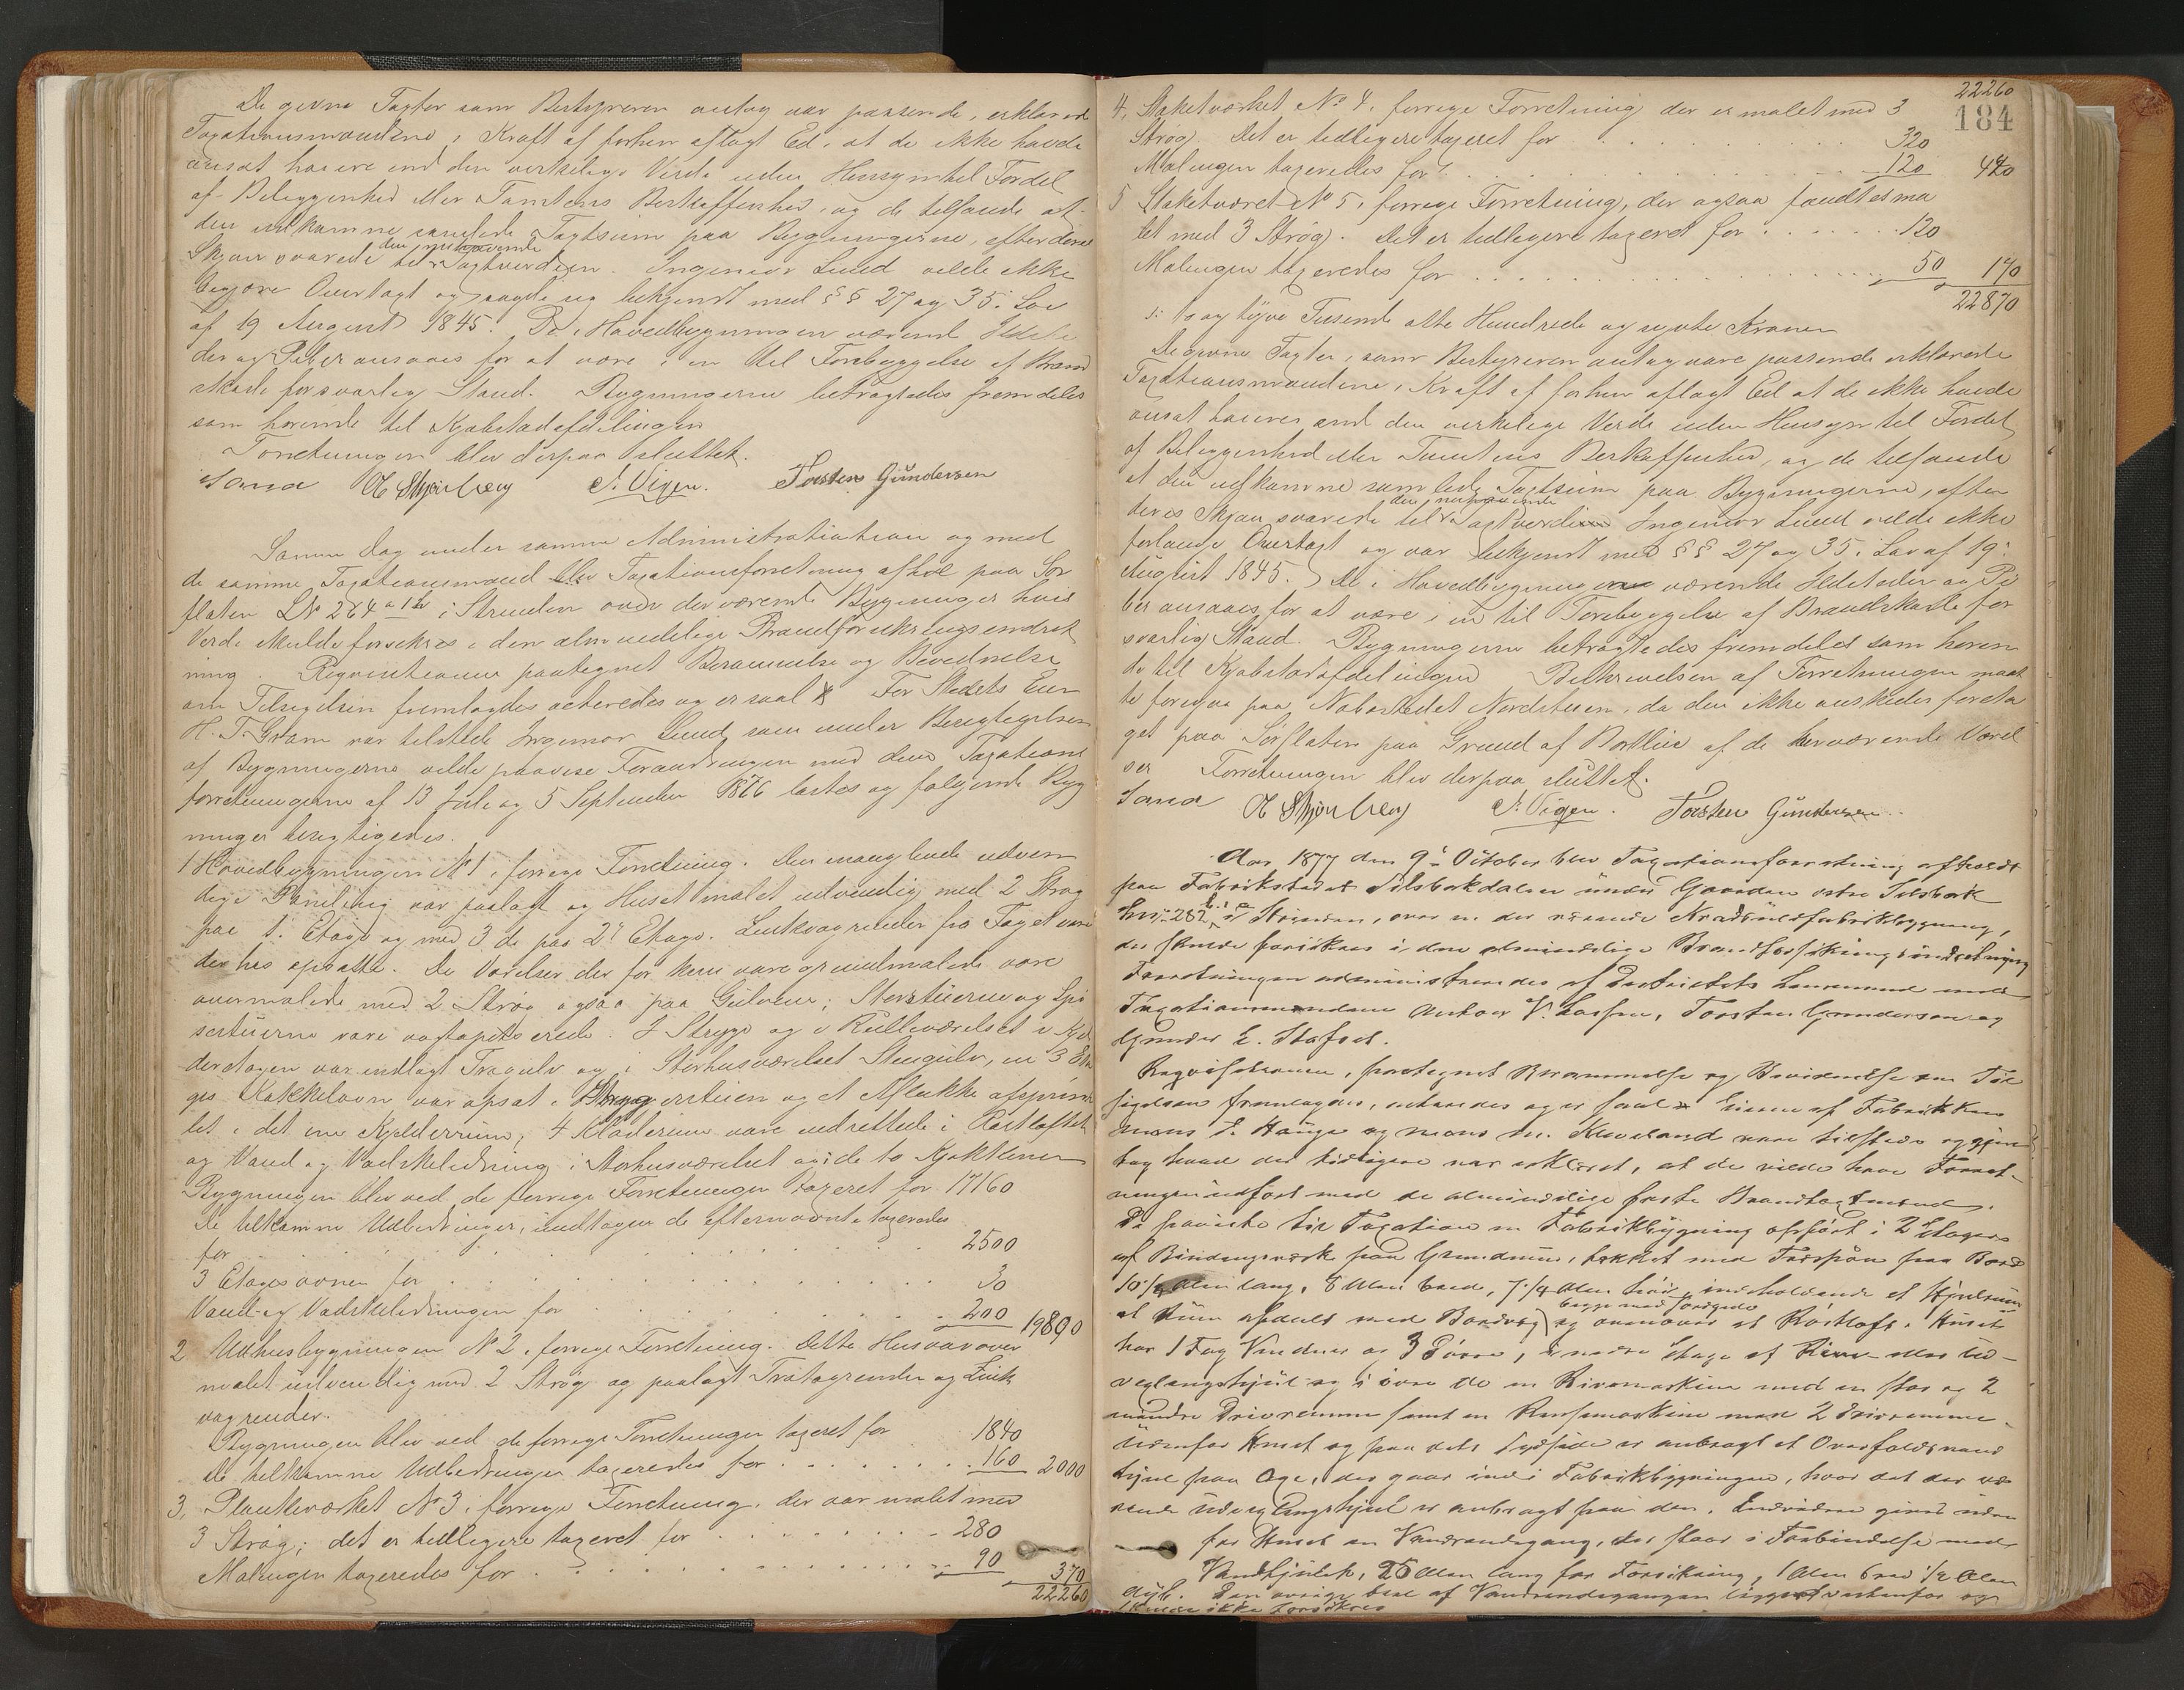 De givne Taxter som Bestyreren antog var passende, erklærede
Taxationsmændene i Kraft af forhen aflagt Ed, at de ikke havde
ansat høiere end den virkelige Værdi uden Hensyn til Fordel
af Beliggenhed eller Tomtens Beskaffenhed, og de tilføiede at
den udkomne samlede Taxtsum paa Bygningerne, efter deres
Skjøn svarede til den nuhavende Taxtværdien. Ingeniør Lund vilde ikke
begjære Overtaxt og sagde sig bekjendt med §§ 27 og 35 i Lov
af 19 August 1845. De i Hovedbygningen værende Ildste
der og Piber ansaaes for at være i en til Forebyggelse af Brand
skade forsvarlig Stand. Bygningerne betragtedes fremdeles
som hørende til Kjøbstadafdelingen
Forretningen blev derpaa sluttet.
Sand O Skjønberg J. Vigen. Torsten Gundersen
Samme Dag under samme Administration og med
de samme Taxationsmænd blev Taxationsforretning afholdt paa Sør
flaten LNo 284 a 1 b i Strinden over derværende Bygninger hvis
Værdi skulde forsikres i den almindelige Brandforsikringsindret
ning. Reqvisitionen paategnet Berammelse og Bevidnelse
om Tilsigelsen fremlagdes acteredes og er saal. For Stedets Eier
H. T. Gram var tilstede Ingeniør Lund, som under Besigtigelsen
af Bygningerne vilde paavise Forandringen med dem. Taxations
forretningerne af 13 Juli og 5 September 1876 læstes og følgende Byg
ninger besigtigedes.
1 Hovedbygningen No 1 i forrige Forretning. Den manglende udven
dige Paneling var paalagt og Huset malet udvendig med 2 Strøg
paa 1. Etage og med 3 do paa 2. Etage. Zinkvagrender fra Taget vare
derhos opsatte. De Værelser der før kun vare grundmalede vare
overmalede med 2 Strøg ogsaa paa Gulvene; Storstuerne og Spi
sestuerne vare voxtapetserede. I Stryge og i Rulleværelset i Kjel
deretagen var indlagt Trægulv og i Størhusværelset Stengulv, en 3 Eta
ges Kakkelovn var opsat i Strygerstuen og et Aflukke afpanne
let i det ene Kjelderrum; 4 Klæderum vare indrettede i Røstloftet
og Vand og Vadskeledning i Størhusværelset og i de to Kjøkkener
Bygningen blev ved de forrige Forretninger taxeret for 17160
De tilkomne Udbedringer, undtagen de efternævnte taxeredes
for . . . . . 2500
3 Etagesovnen for . . . . . 30
Vand- og Vadskeledningen for . . . . . 200 19890
2 Udhusbygningen No 2 i forrige Forretning. Dette Hus var over
malet udvendig med 2 Strøg og paalagt Trætagrender og Zink
vagrender.
Bygningen blev ved de forrige Forretninger taxeret for 1840
De tilkomne Udbedringer taxeredes for . . . . . 160 2000
3. Plankeværket No 3 i forrige Forretning, der var malet med
3 Strøg; det er tidligere taxeret for . . . . . 280
Malingen taxeredes for . . . . . 90 370
22260
22260
184
4. Staketværket No 4 i forrige Forretning der er malet med 3
Strøg. Det er tidligere taxeret for . . . . . 320
Malingen taxeredes for . . . . . 120 440
5 Staketværet No 5 i forrige Forretning, der ogsaa fandtes ma
let med 3 Strøg. Det er tidligere taxeret for . . . . . 120
Malingen taxeredes for . . . . . 50 170
22870
s: to og tyve Tusende otte Hundrede og sytti Kroner
De givne Taxter, som Bestyreren antog vare passende erklærede
Taxationsmændene i Kraft af forhen aflagt Ed at de ikke havde
ansat høiere end den virkelige Værdi uden Hensyn til Fordel
af Beliggenhed eller Tomtens Beskaffenhed, og de tilføiede
at den udkomne samlede Taxtsum paa Bygningerne, efter
deres Skjøn svarede til den nuhavende Taxtværdien Ingeniør Lund vilde ikke
forlange Overtaxt og var bekjendt med §§ 27 og 35 i Lov af 19.
August 1845. De i Hovedbygningerne værende Ildsteder og Pi
ber ansaaes for at være i en til Forebyggelse af Brandskade for
svarlig Stand. Bygningerne betragtedes fremdeles som høren
de til Kjøbstadafdelingen Beskrivelsen af Forretningen maat
te foregaa paa Nabostedet Nordstuen, da den ikke ønskedes foreta
get paa Sørflaten paa Grund af Bortleie af de derværende Værel
ser Forretningen blev derpaa sluttet.
Sand O Skjønberg J. Vigen. Torsten Gundersen.
Aar 1877 den 9de October blev Taxationsforretning afholdt
paa Fabrikstedet Silsbækdalen under Gaarden østre Silsbæk
Lnr. 282 i Strinden, over en der værende Kraduldfabrikbygning,
der skulde forsikres i den almindelige Brandforsikringsindretning
Forretningen administreredes af Distriktets Lensmand med
Taxationsmændene Anton V. Larsen, Torsten Gundersen og
Gunder E. Stafset.
Reqvisitionen, paategnet Berammelse og Bevidnelse om Til
sigelsen fremlagdes, acteredes og er saal. Eierne af Fabrikken
Mons J. Hauge og Mons M. Kneeland vare tilstede og gjen
tog hvad der tidligere var erklæret, at de vilde have Forret-
ningen udført med de almindelige faste Brandtaxtmænd.
De paaviste til Taxation en Fabrikbygning opført i 2 Etager
af Bindingsverk paa Grundmur, tækket med Træspon paa Bord
10 1/2 Alen lang, 8 Alen bred, 7 1/4 Alen høi, indholdende et Hjulrum
et Rum afdelt med Bordvæg begge med Jordgulv og ovenover et Røstloft. Huset
har 1 Fag Vinduer og 3 Døre, i nedre Etage et Rive- eller Ud-
vexlingshjul og i øvre do en Rivemaskine med en stor og 2
mindre Drivremme samt en Rensemaskine med 2 Drivremme.
Udenfor Huset og paa dets Sydside er anbragt et Overfaldsvand
hjul paa Axe, der gaar ind i Fabrikbygningen, hvor det der væ
rende Udvexlingshjul er anbragt paa den. Endvidere gives uden
for Huset en Vandrendegang, der staar i Forbindelse med
Vandhjulet, 25 Alen lang for Forsikring, 1 Alen bred 1/2 Alen
dyb. Den øvrige Del af Vandrendegangen ligger vestenfor og
skulde ikke forsikres